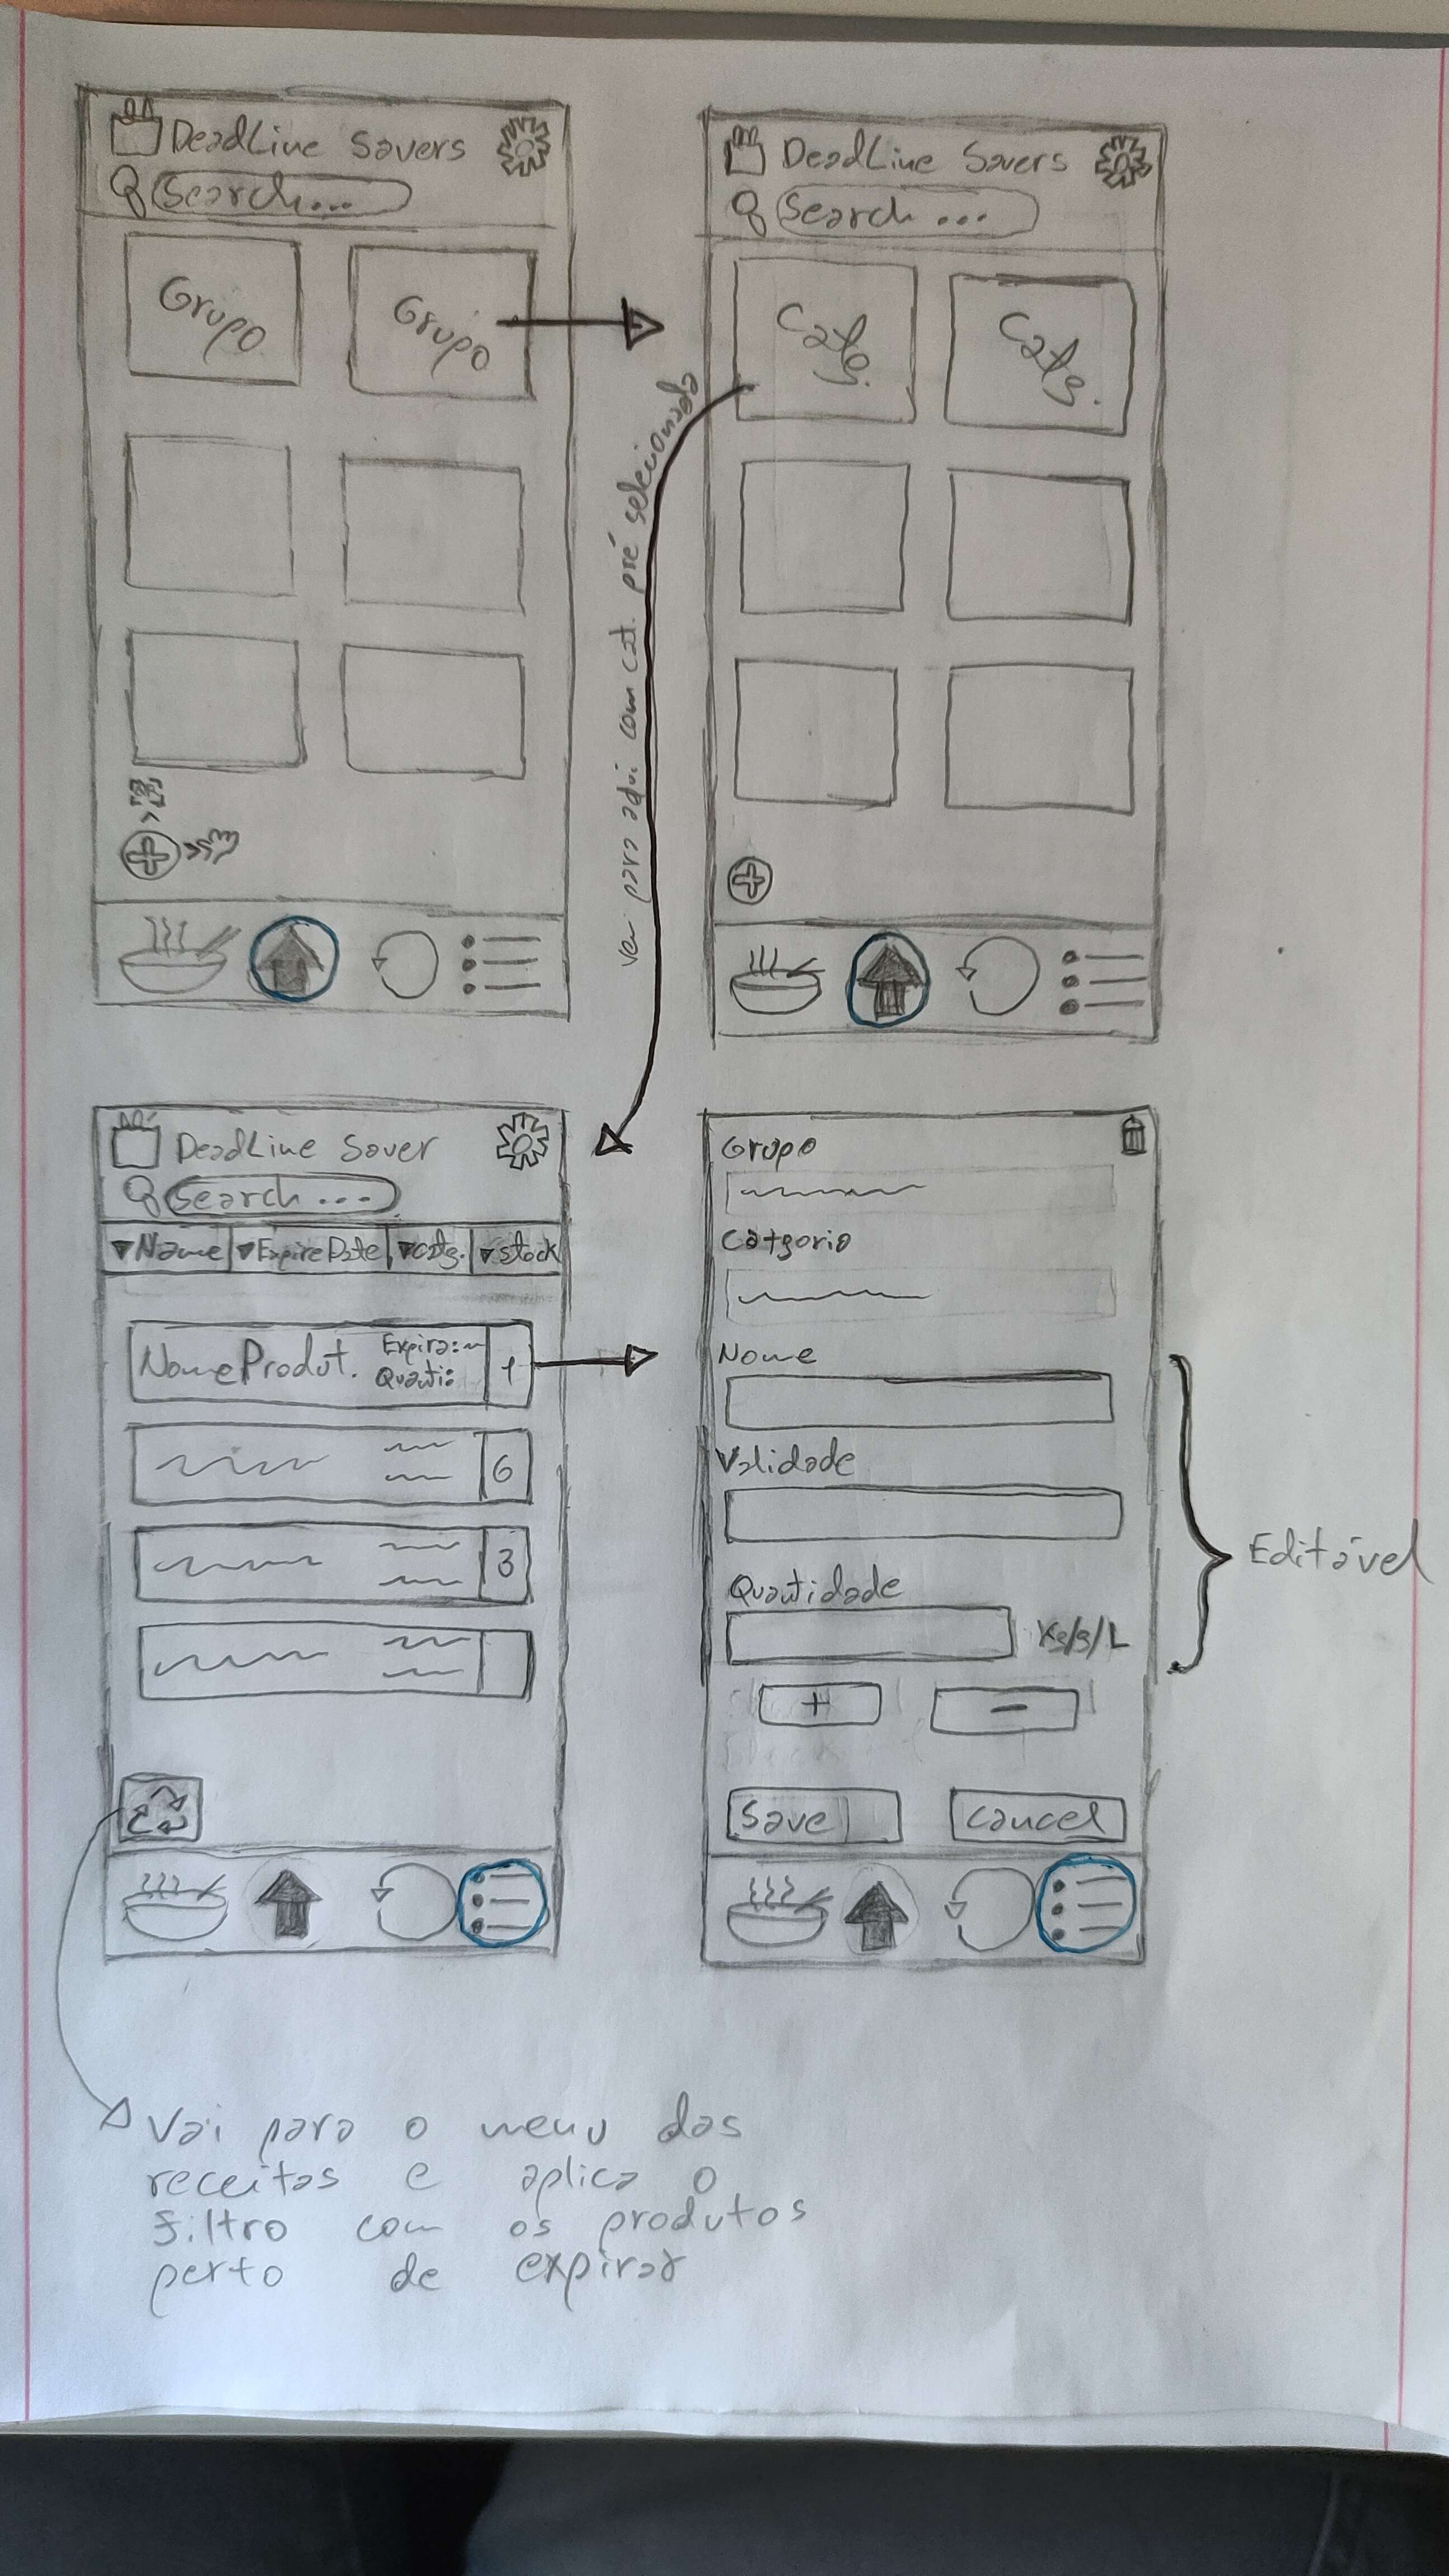 DeadLine Savers
Search...
Grupo
Grupo
DeadLine Savers
Search ...
Catg.
Catg.
vem para aqui com cat. pré selecionada
DeadLine Saver
Search ...
▼Name ▼Expire Date ▼catg. ▼stock
NomeProdut. Expira:~ 1
Quanti:
6
3
Grupo
Catgoria
Nome
Validade
Quantidade
Kg/g/L
+ -
Save Cancel
Editável
Vai para o menu das
receitas e aplica o
filtro com os produtos
perto de expirar